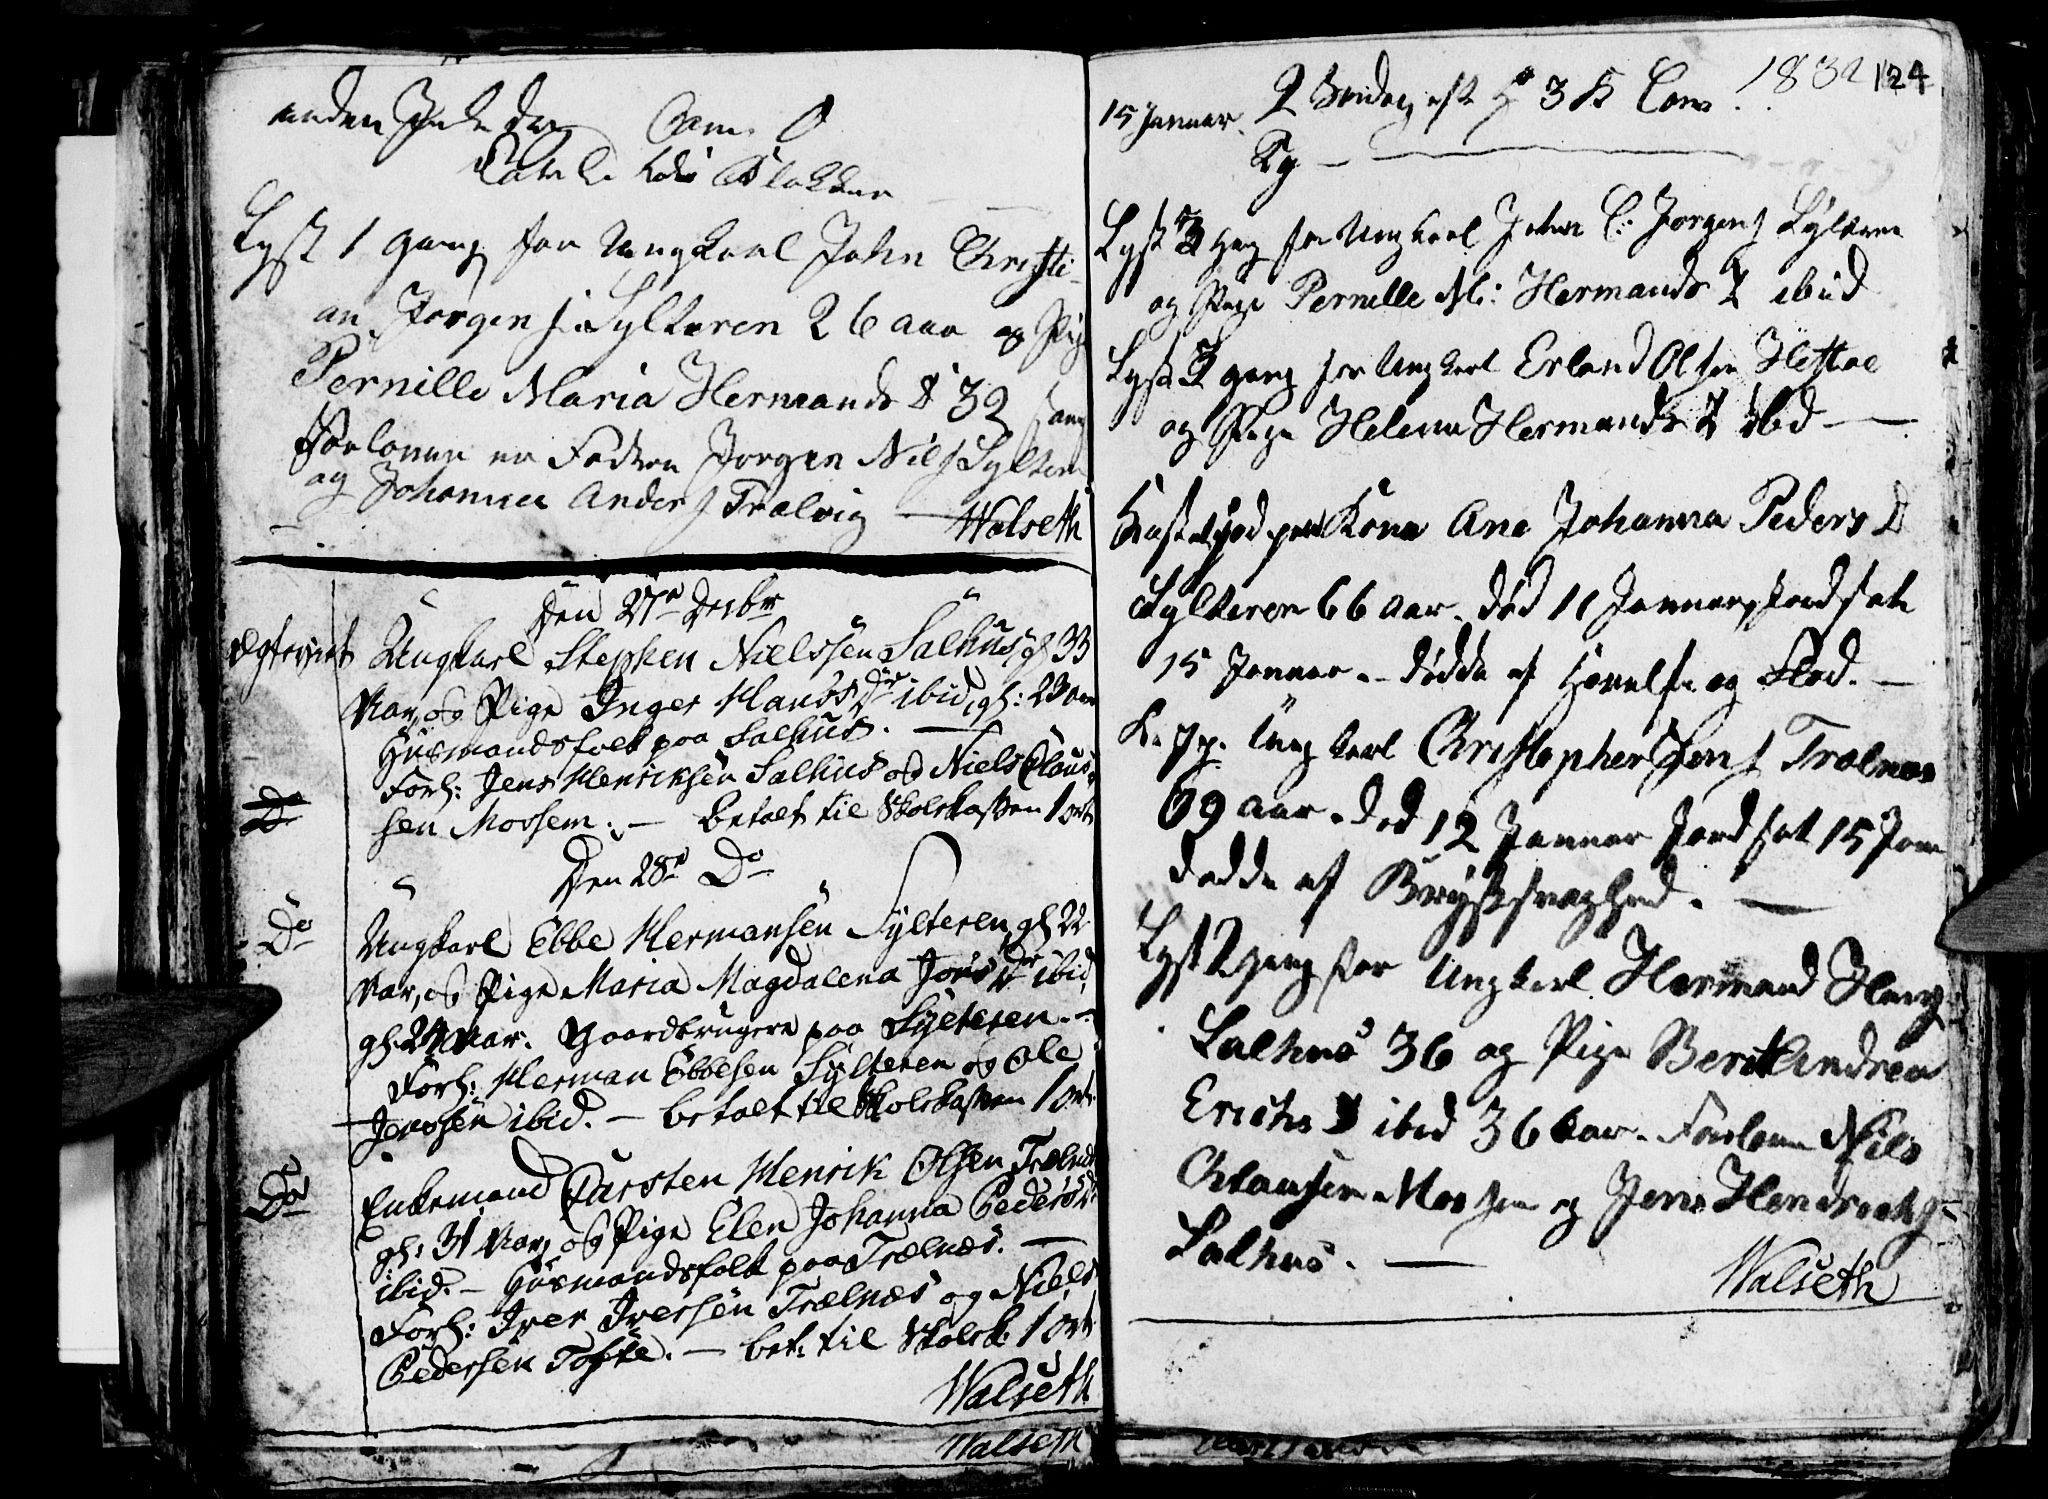 anden Jule dag Com. 0
Lyst 1 gang for Ungkarl John Christi-
an Jørgens. Sylteren 26 aar og Pige
Pernille Maria Hermands D 32
Forlover er Fadren Jørgen Nils Sylteren
og Johannes Anders Trælvig — Walseth
Den 27de Decbr
Ægteviet Ungkarl Stephen Nielssen Salhus, gl 33
Aar, og Pige Inger Hansdr ibid, gl: 23 aar
Huusmandsfolk paa Salhus. —
Forl: Jens Henriksen Salhus og Niels Claus-
Do sen Mossem. — betalt til Skolekassen 1 ort
Den 28de Do
Do Ungkarl Ebbe Hermansen Sylteren, gl 22
Aar, og Pige Maria Magdalena Jonsdr ibid,
gl. 24 Aar. Gaardbrugere paa Sylteren. —
Forl: Herman Ebbesen Sylteren og Ole
Jenssen ibid. — betalt til Skolekassen 1 ort
Do Enkemand Carsten Henrik Olsen Trælnæs
gl. 31 Aar, og Pige Elen Johanna Pedersdr
ibid. — Huusmandsfolk paa Trælnæs. —
Forl: Iver Iversen Trælnæs og Niels
Pedersen Tofte. — bet. til Skolek. 1 ort
Walseth
Walseth
1832 124
15 Januar. 2 Søndag eft H 3 K Com
Lyst 3 gang for Ungkarl John C: Jørgens Sylteren
og Pige Pernille M: Hermands D ibid
Lyst 3 gang for Ungkarl Erland Olsen Heftøe
og Pige Helena Hermands D ibid —
Kastet Jord paa Kone Ane Johanna Peders D
Sylteren 66 aar. død 11 Januar, Jordsat
15 Januar. — dødde af
K. J. p. Ungkarl Christopher Jens Trælnæs
69 aar. død 12 Januar Jordsat 15 Jan
dødde af Brystsvaghed. —
Lyst 2 gang for Ungkarl Hermand Hans
Salhus 36 og Pige Berit Andrea
Erichs D ibid 36 aar. Forlover Nils
Clausen Mossem og Jens Hendrichs
Salhus. —
Walseth